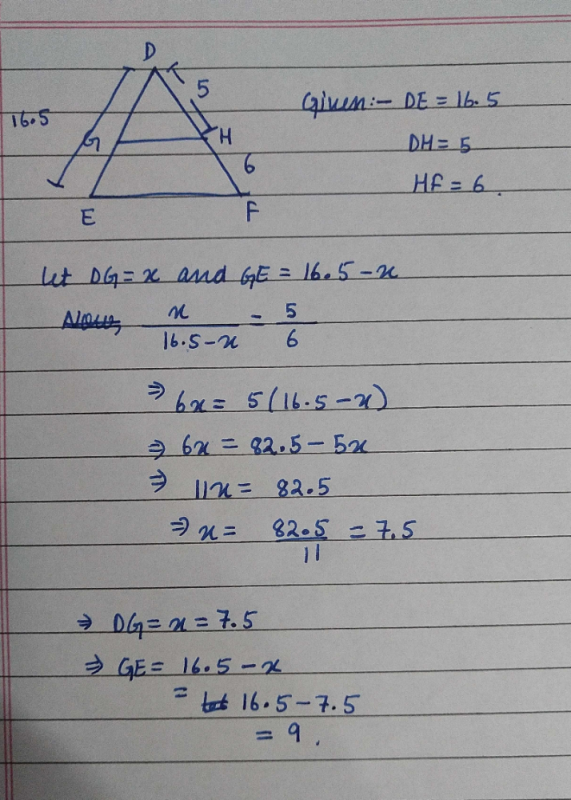 D
5
16.5
G
H
6
E
F
Given:- DE = 16.5
DH = 5
HF = 6.
Let DG = x and GE = 16.5 - x
Now, x / 16.5 - x = 5 / 6
⇒ 6x = 5(16.5 - x)
⇒ 6x = 82.5 - 5x
⇒ 11x = 82.5
⇒ x = 82.5 / 11 = 7.5
⇒ DG = x = 7.5
⇒ GE = 16.5 - x
= 16.5 - 7.5
= 9.